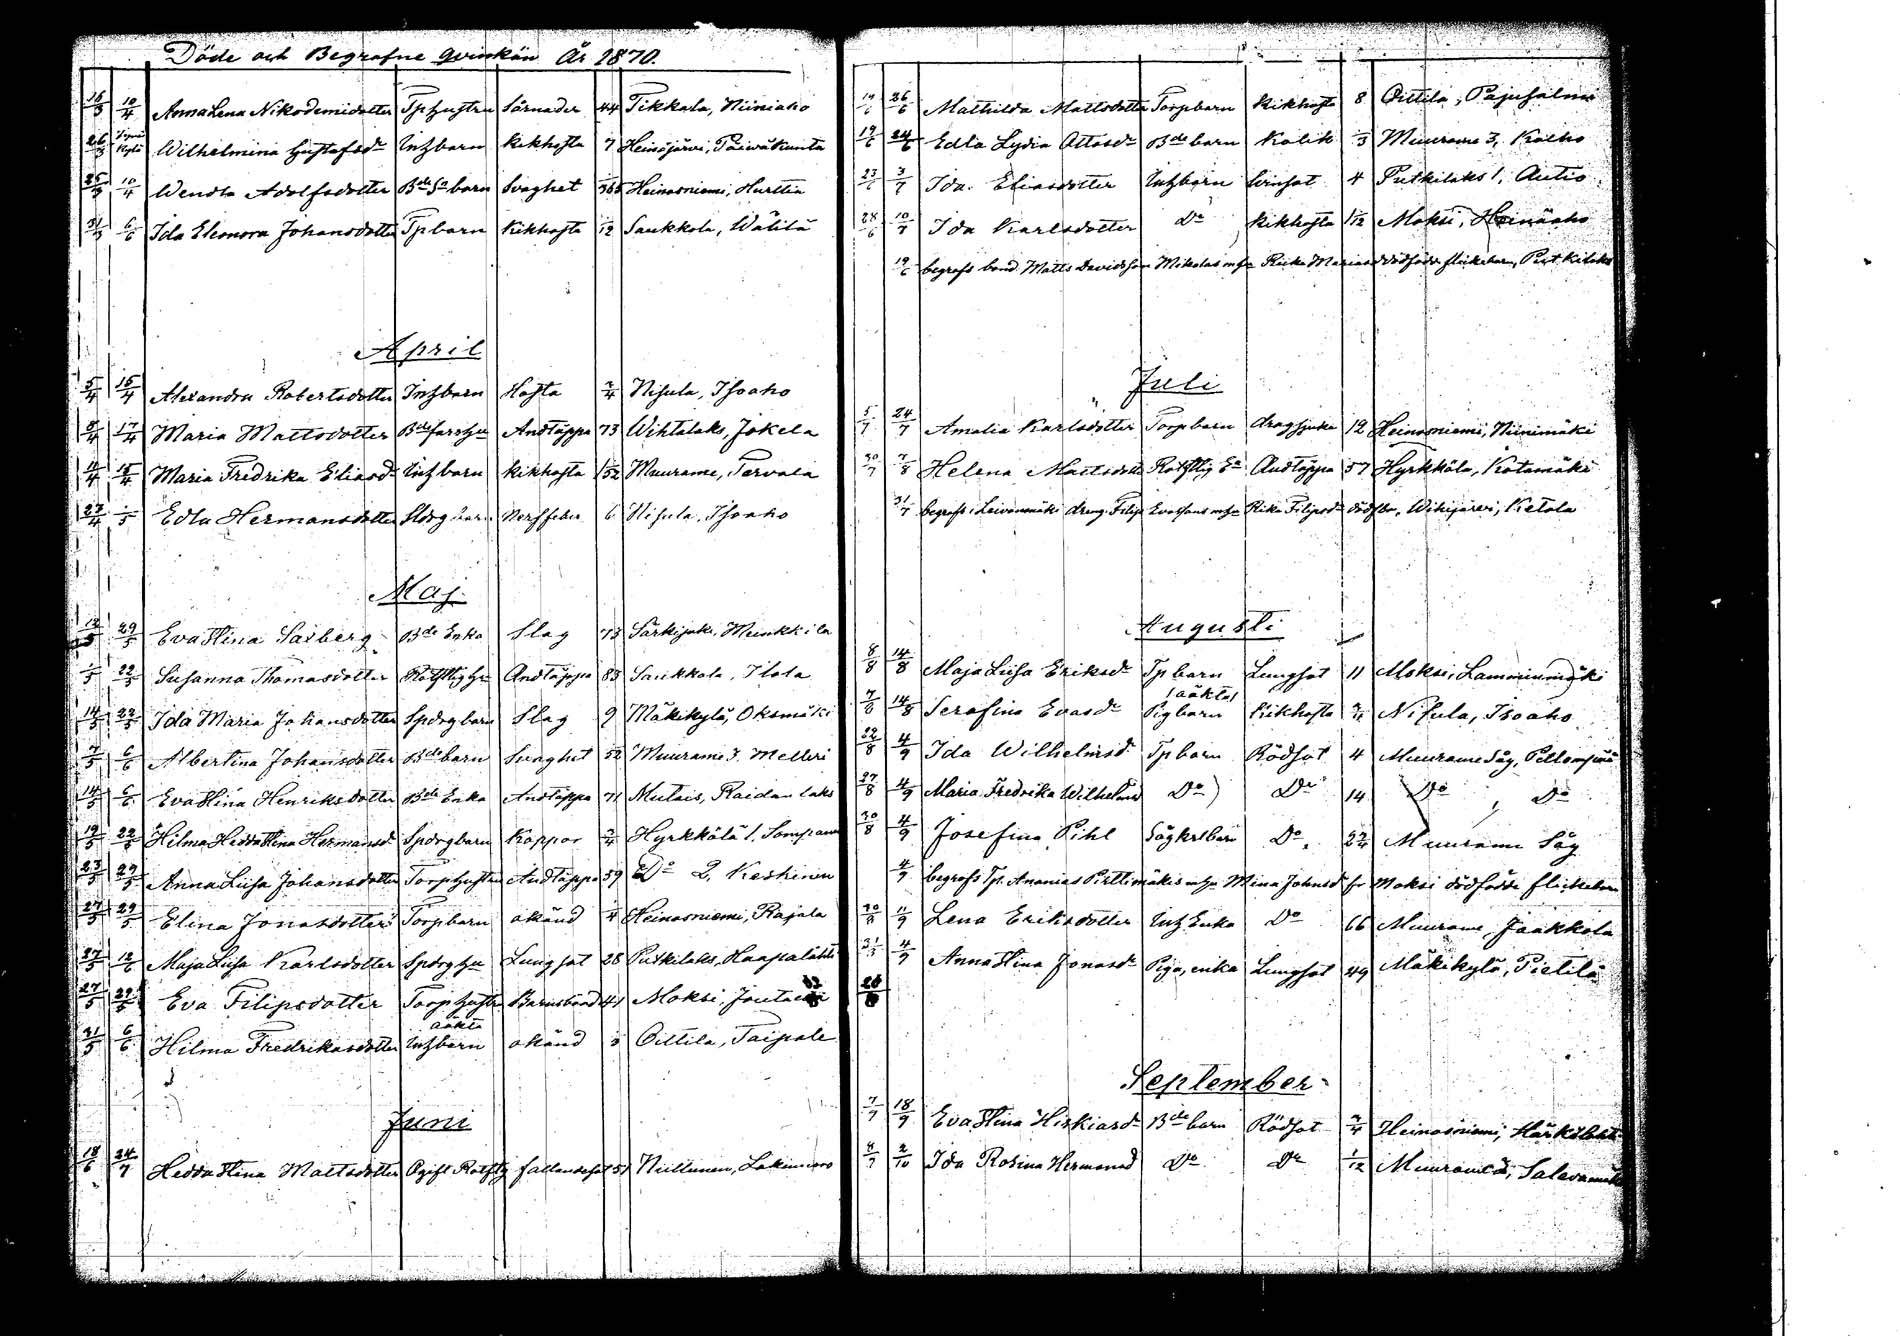 Döde och Begrafne Qvinkön År 1870.
16/3 10/4 Anna Lena Nikodemidotter Tphustru Sörnader 44 Tikkala, Niiniaho
26/3 Wilhelmina Gustafsdr Inhbarn kikhosta 7 Heinojärvi, Päiwäkunta
25/3 10/4 Wendla Adolfsdotter Bde Sn barn Svaghet /365 Heinosniemi, Hurttia
31/3 6/6 Ida Eleonora Johansdotter Tpbarn Kikhosta /12 Saukkola, Wälilä
April
5/4 15/4 Alexandra Robertsdotter Inhbarn Hosta 2/4 Nisula, Isoaho
8/4 17/4 Maria Mattsdotter Bde Andtäppa 73 Wihtalaks, Jokela
11/4 18/4 Maria Fredrika Eliasdr Inhbarn kikhosta 1/52 Muurame, Tervala
27/4 /5 Edla Hermansdotter Sldrg barn Nerffeber 6 Nisula, Isoaho
Maj
12/5 29/5 Eva Stina Saxberg Bde Enka Slag 73 Särkijoki, Muikkila
/5 22/5 Susanna Thomasdotter Rotfttighn Andtäppa 83 Saukkola, Ilola
14/5 22/5 Ida Maria Johansdotter Spdrgbarn Slag 9 Mäkikylä, Oksmäki
7/5 6/6 Albertina Johansdotter Bde barn Svaghet /52 Muurame 3. Melleri
14/5 6/6 Eva Stina Henriksdotter Bde Enka Andtäppa 71 Mutais, Raidanlaks
19/5 22/5 Hilma Hedda Stina Hermansdr Spdrgbarn Koppor 3/4 Hyrkkölä 1, Sompanen
23/5 29/5 Anna Lisa Johansdotter Torphustru Andtäppa 59 Do 2, Keskinen
27/5 29/5 Elina Jonasdotter Torpbarn okänd 1/4 Heinosniemi, Rajala
27/5 12/6 Maja Lisa Karlsdotter Spdrghu Lungsot 28 Putkilaks, Haapalahti
27/5 29/5 Eva Filipsdotter Torphustru Barnsbörd 41 Moksi,
oäkta
31/5 6/6 Hilma Fredrikasdotter Inhbarn okänd Oittila, Taipale
Juni
18/6 24/7 Hedda Stina Mattsdotter Ogift Rotftg fallandesot 51 Niillinen,
19/6 26/6 Mathilda Mattsdotter Torpbarn kikhosta 8 Oittila, Pajusalmi
19/6 24/6 Edla Lydia Ottosdr Bde barn Kolik /3 Muurame 3, Kalho
23/6 3/7 Ida Eliasdotter Inhbarn 4 Putkilaks 1, Autio
28/6 10/7 Ida Karlsdotter Do kikhosta 1/12 Moksi, Heinäaho
19/6 begrafs bond. Matts Davidsson Mikolas m hu Rika Mariasdr dödfödde flickebarn, Putkilaks
Juli
5/7 24/7 Amalia Karlsdotter Torpbarn dragsjuka 12 Heinosniemi, Niinimäki
30/7 7/8 Helena Mattsdotter Rotfttig Ea Andtäppa 57 Hyrkkölä, Kotamäki
31/7 begrafs i Leivonmäki dreng. Filip Evasons m hu Rika Filipsdr dödfba, Wihijärvi, Ketola
Augusti
8/8 14/8 Maja Lisa Eriksdr Tp barn Lungsot 11 Moksi, Lamminmäki
/oäkta/
7/8 14/8 Serafina Evasdr Pigbarn Kikhosta 3/4 Nisula, Isoaho
22/8 4/9 Ida Wilhelmsdr Tpbarn Rödsot 4 Muurame Såg,
27/8 4/9 Maria Fredrika Wilhelmsd Do Do 14 Do, Do
30/8 4/9 Josefina Pihl Sågkrlbarn Do 22/4 Muurame Såg
4/9 begrafs Tp. Ananias Pirttimäkis m hu Mina Johnsd fr Moksi dödfödde flickebarn
30/8 11/9 Lena Eriksdotter Inh Enka Do 66 Muurame, Jaakkola
31/8 4/9 Anna Stina Jonasdr Piga, enka Lungsot 49 Mäkikylä, Pietilä
September
7/9 18/9 Eva Stina Hiskiasdr Bde barn Rödsot 3/4 Heinosniemi,
8/9 2/10 Ida Rosina Hermansd Do Do 1/12 Muurame